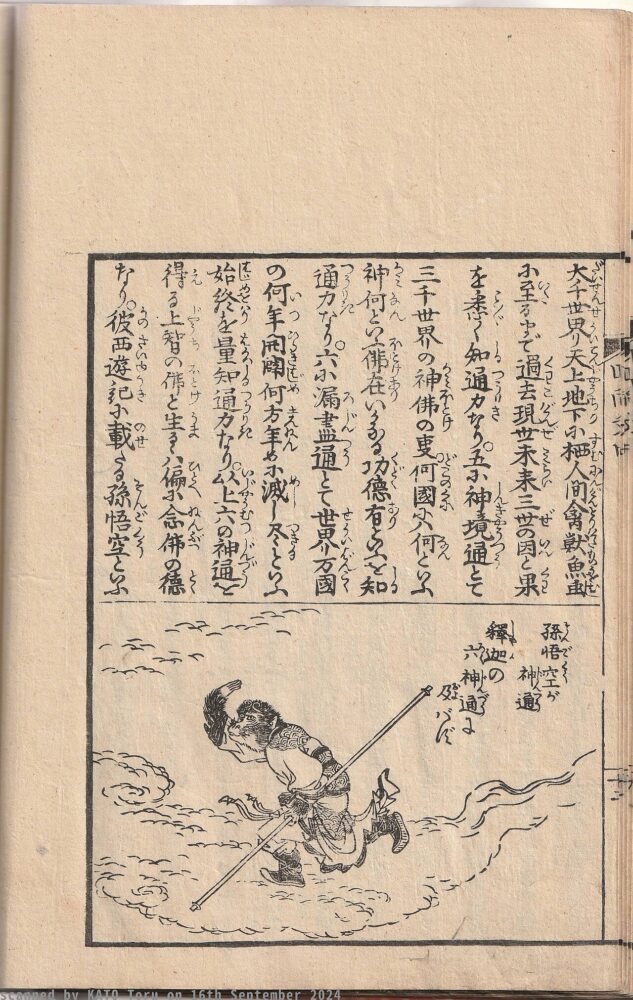 大千世界天上地下に栖人間禽獣魚虫
に至るまで過去現世未来三世の因と果
を柔く知通力なり。五に神境通とて
三千世界の神佛の叓何國に何といふ
神何といふ佛在いかなる功徳有といふを知
通力なり。六に漏盡通とて世界万國
の何年開闢何万年めに滅し尽るといふ
始終を量知通力なり。以上六の神通を
得る上智の佛と生るゝ偏に念佛の徳
なり。彼西遊記に載たる孫悟空といふ
孫悟空が
神通
釋迦の
六神通に
及ばず
scanned by KATO Toru on 16th September 2024